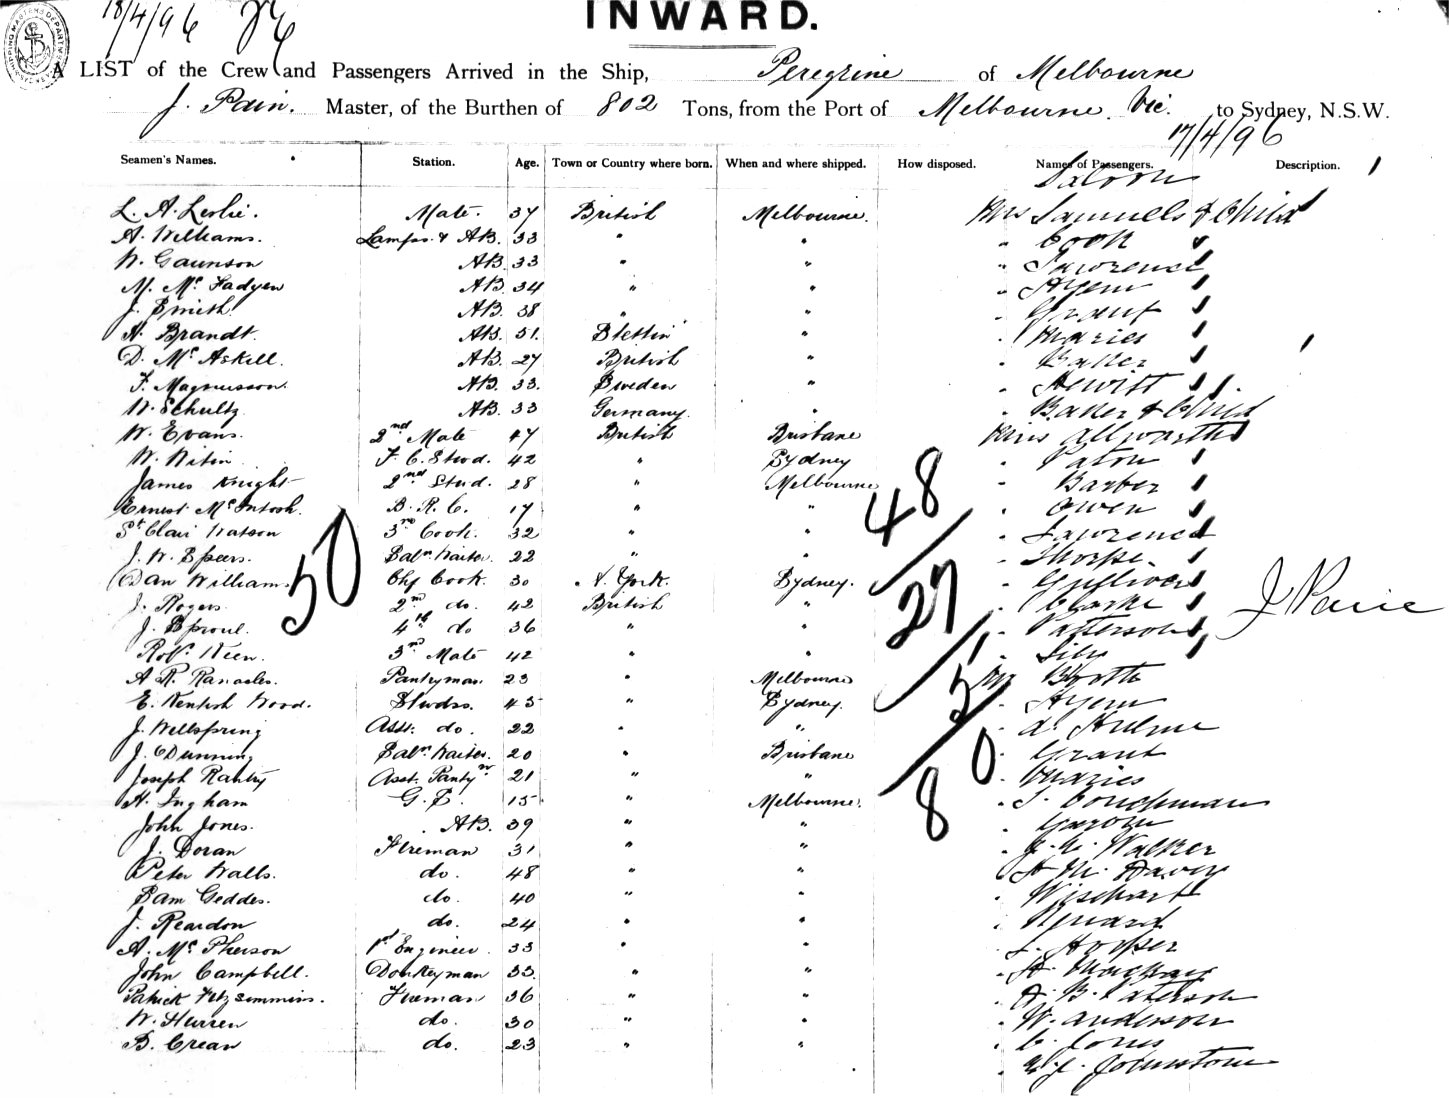 18/4/96
INWARD.
A LIST of the Crew and Passengers Arrived in the Ship, Peregrine of Melbourne
J. Pain. Master, of the Burthen of 802 Tons, from the Port of Melbourne, Vic. to Sydney, N.S.W.
17/4/96
Seamen's Names. Station. Age. Town or Country where born. When and where shipped. How disposed. Names of Passengers. Description.
Saloon
L. A. Leslie. Mate. 37 British Melbourne. Mrs Samuels & Child
A. Williams. Lamps & AB. 33 " " " Cook
W. Gaunson AB. 33 " " " Lawrence
M. McFadyen AB. 34 " " " Hyem
J. Smith AB. 38 " " " Grant
H. Brandt. AB. 51. Stettin " " Maries
D. McAskill. AB. 27 British " " Baker
F. Magnusson. AB. 33. Sweden " " Hewitt
W. Schultz AB. 33 Germany. " " Baker & Child
W. Evans. 2nd Mate 47 British Brisbane Miss Allworth
W. F. C. Stwd. 42 " Sydney " Paton
James Knight 2nd Stwd. 28 " Melbourne " Barber
Ernest McIntosh. B. R. C. 17 " " " Owen
St Clair Watson 3rd Cook. 32 " " " Lawrence
J. W. Speers. Saln Waiter. 22 " " " Thorpe
Dan Williams. Chf Cook. 30 N. York. Sydney. "
J. Rogers. 2nd do. 42 British " " Clarke
J. Sproul. 4th do 36 " " " Patterson
Robt. Keen. 3rd Mate 42 " " "
A. R. Ranacles. Pantryman. 23 " Melbourne Mr
E. Kentish Wood. Stwdss. 45 " Sydney. " Hyem
J. Wellspring Asst. do. 22 " " " A. Hulme
J. Dunning Saln Waiter. 20 " Brisbane " Grant
Joseph Rantry Asst. Pantyn 21 " " " Maries
H. Ingham G. S. 15 " Melbourne. " S. Couchman
John Jones. AB. 39 " " "
J. Doran Fireman 31 " " " Walker
Peter Walls. do. 48 " " "
Sam Geddes. do. 40 " " " Wischart
J. Reardon do. 24 " " "
A. McPherson 1st Engineer 33 " " " Hopper
John Campbell. Donkeyman 33. " " " Mackay
Patrick Fitzsimmins. Fireman 36 " " " Paterson
W. Hurren do. 30 " " " W. Anderson
B. Crean do. 23 " " " C. Jones
" Johnstone
50
48
27
5
80
J Paine